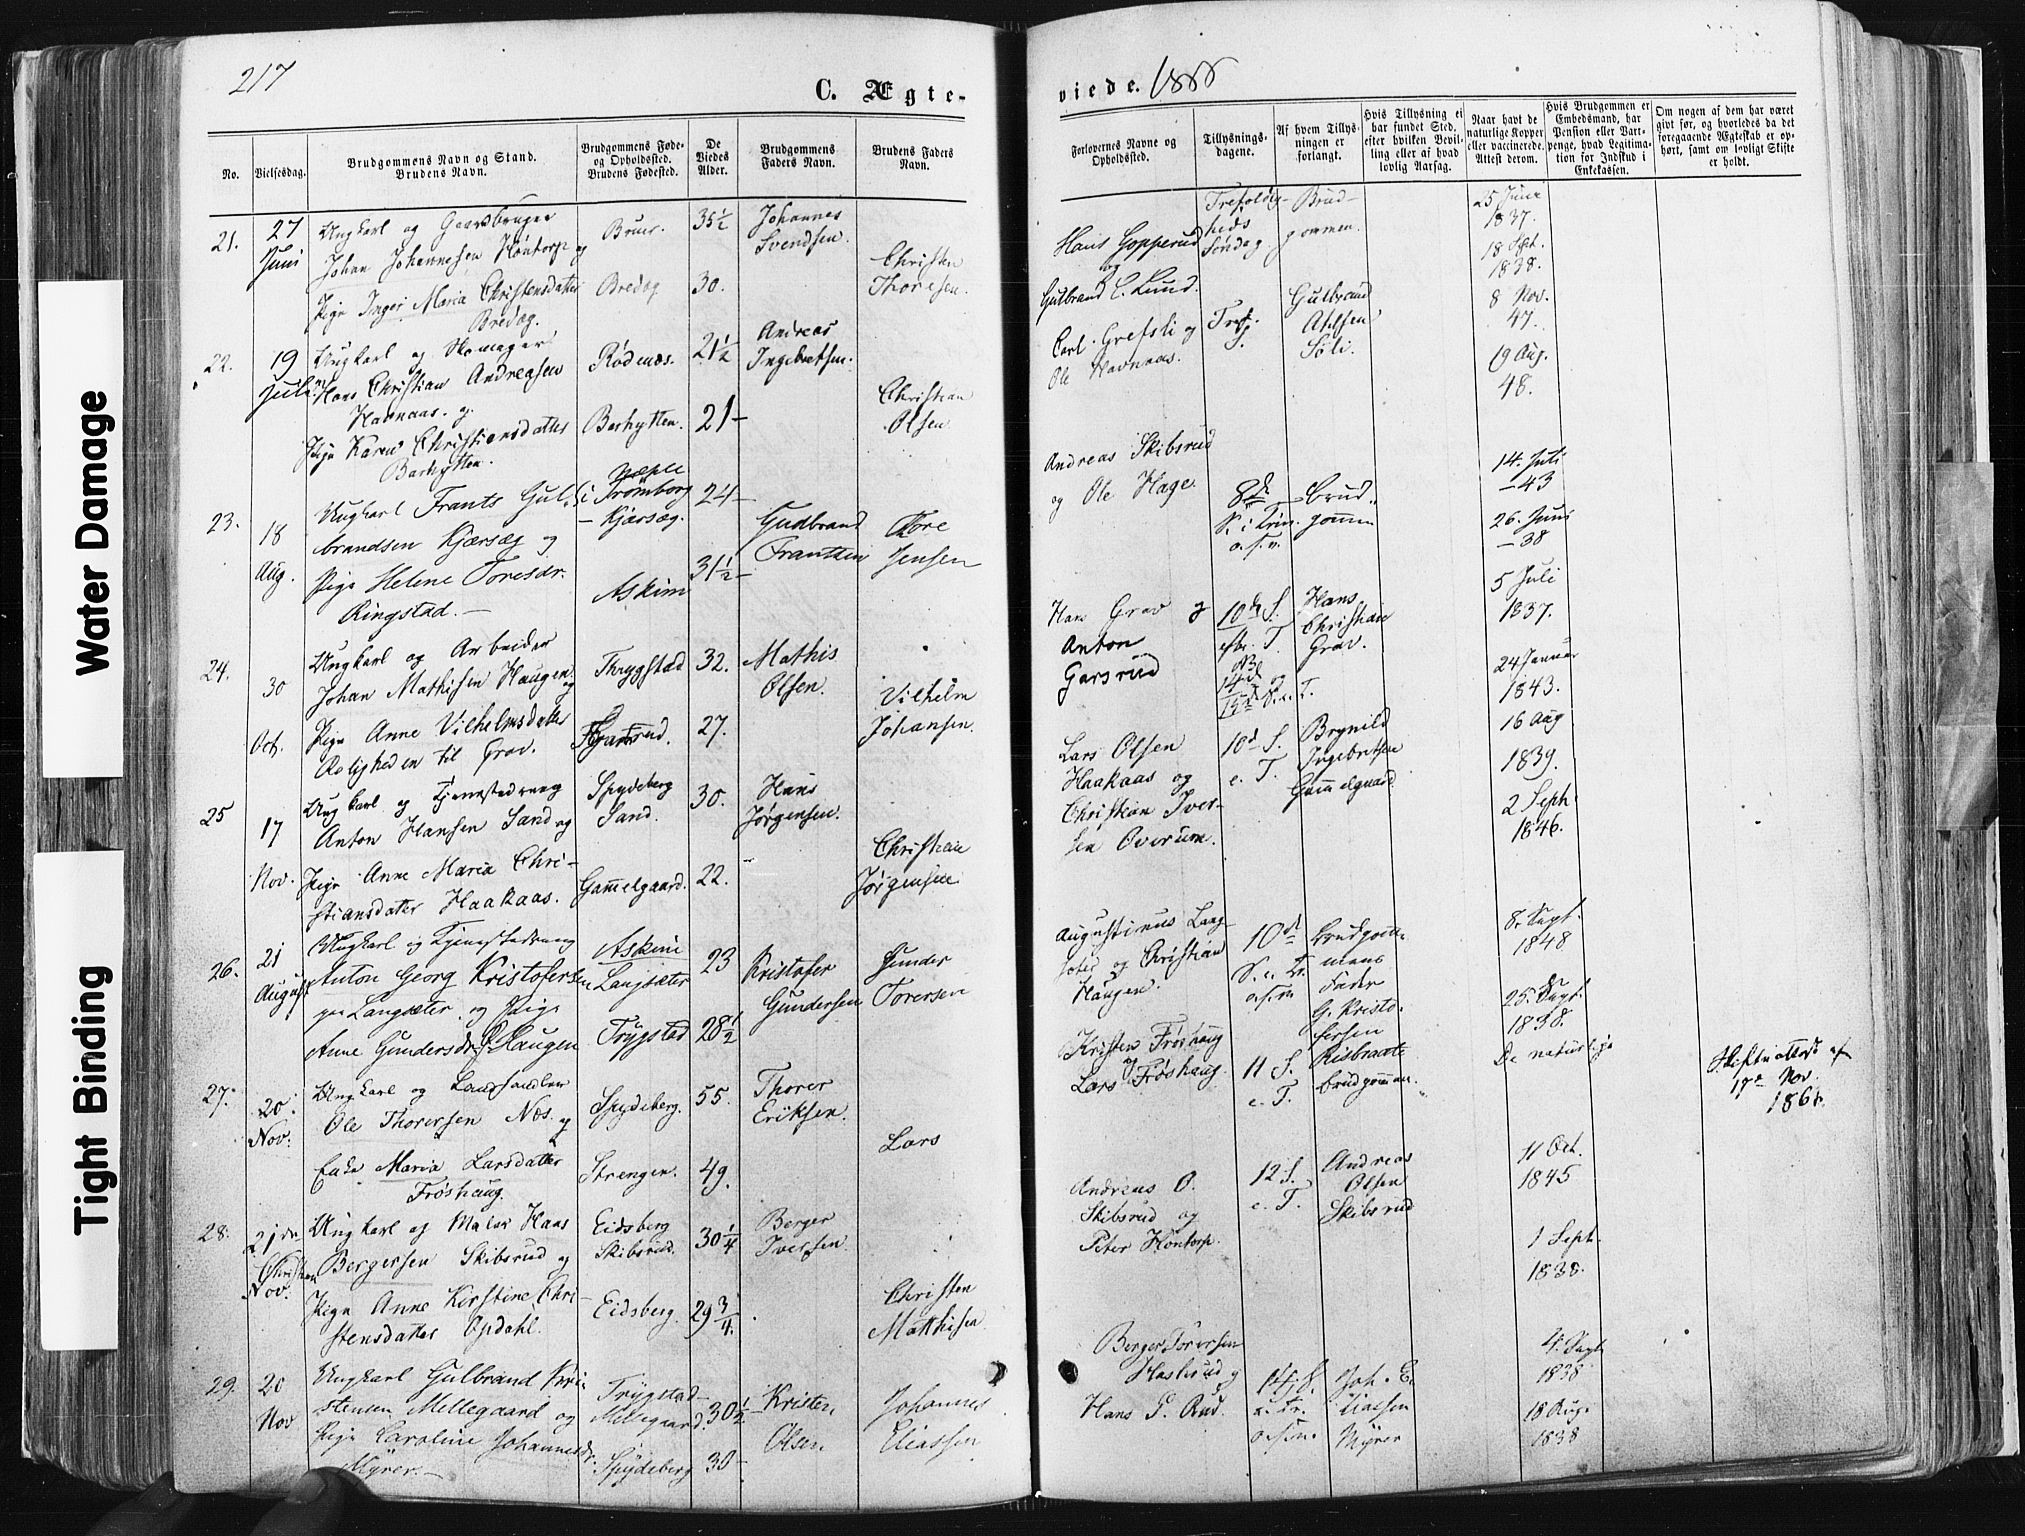 217
C. Ægte-
No.
Vielsesdag.
Brudgommens Navn og Stand.
Brudens Navn.
Brudgommens Føde-
og Opholdssted.
Brudens Fødested.
De
Viedes
Alder.
Brudgommens
Faders Navn.
Brudens Faders
Navn.
21.
27
Juni
Ungkarl og Gaardbruger
Johan Johannesen Hôntorp og
Pige Inger Maria Christensdatter
Bredag.
Bredag
35½
30.
Johannes
Svendsen.
Christen
Thoresen.
22.
19
Juli
Ungkarl og Skomager
Hans Christian Andreasen
Havnaas. og
Pige Karen Christiansdatter
Barhytten.
Rødenæs.
Barhytten.
21½
21-
Andreas
Ingebretsen.
Christian
Olsen
23.
18
Aug.
Ungkarl Frants Gul-
brandsen Kjærsæg og
Pige Helene Toresdr.
Ringstad. -
Trømborg
- Kjærsæg.
Askim
24-
31½-
Gudbrand
Frantsen
Tore
Jensen
24.
30
Oct.
Ungkarl og Arbeider
Johan Mathisen Haugen og
Pige Anne Vilhelmsdatter
Roligheden til Grav.
Thrygstad
32.
27.
Mathis
Olsen.
Vilhelm
Johansen.
25
17
Nov.
Ungkarl og
Anton Hansen Sand og
Pige Anne Maria Chri-
stiansdatter Haakaas.
Spydeberg
Sand.
Gammelgaard.
30.
22.
Hans
Jørgensen.
Christian
Jørgensen
26.
21
August
Ungkarl og
Anton Georg Kristofersen
Langsæter. og Pige
Anne Gundersdr. Haugen
Askim
Langsæter
Trygstad
23
28½
Kristofer
Gundersen
Gunder
Toresen
27.
20.
Nov.
Ungkarl og Landhandler
Ole Thorersen Næs. og
Enke Maria Larsdatter
Frøshaug.
Spydeberg.
Strengen.
55.
49.
Thorer
Eriksen.
Lars
28.
21de
Nov.
Ungkarl og Maler Hans
Christian
Bergersen Skibsrud og
Pige Anne Kirstine Chri-
stensdatter Opdahl.
Eidsberg
Skibsrud.
Eidsberg
30¼
29¾.
Berger
Iversen.
Christen
Matthisen.
29.
20
Nov
Ungkarl Gulbrand Kri-
stensen Mellegaard og
Pige Caroline Johannesdr.
Myrer. -
Trygstad -
Mellegaard.
Spydeberg
30½
30-
Kristen
Olsen
Johannes
Eliassen
viede. 1868
Forlovernes Navne og
Opholdssted.
Tillysnings-
dagene.
Af hvem Tillys-
ningen er
forlangt.
Hvis Tillysning ei
har fundet Sted,
efter hvilken Bevil-
ling eller af hvad
lovlig Aarsag.
Naar havt de
naturlige Kopper
eller vaccinerede.
Attest derom.
Hvis Brudgommen er
Embedsmand, har
Pension eller Vart-
penge, hvad Legitima-
tion for Indskud i
Enkekassen.
Om nogen af dem har været
gift før, og hvorledes da det
foregaaende Ægteskab er op-
hørt, samt om lovligt Skifte
er holdt.
Hans Gopperud
og
Gulbrand C. Lund.
Trefoldig-
heds
Søndag.
Brud-
gommen.
25 Juni
1837.
18 Sept.
1838.
Carl Grefsli og
Ole Havnaas.
Tref.
Gulbrand
Søli.
8 Nov.
47.
19 Aug.
48.
Andreas Skibsrud
og Ole Hage.
8de
S. i Trin.
o.s.v.
Brud-
gommen
14. Juli
- 43
26. Juni
- 38
Hans Grav og
Anton
Garsrud
10de S.
efter T.
Hans
Christian
Grav.
5 Juli
1837.
24 Januar
1843.
Lars Olsen
Haakaas og
Christian Iver-
sen Overum.
10d S.
e. T.
Brynild
Ingebretsen
Gammelgaard
16 Aug
1839.
2 Sept.
1846.
Augustinus Lang-
sæter og Christian
Haugen.
10de
S. e. Tr.
o.s.v.
Brudgom-
mens
Fader
G. Kristo-
fersen
8. Sept.
1848
25. Sept.
1838.
Kristen Frøshaug
og
Lars Frøshaug.
11 S.
e. T.
Brudgommen.
De naturlige
Skifteattest af
17de Nov.
1868.
Andreas O.
Skibsrud og
Peter Hôntorp.
12 S.
e. T.
Andreas
Olsen
Skibsrud
11 Oct.
1845
1 Sept.
1838.
Berger Torersen
Haslerud og
Hans P. Rud.
14. S.
e. Tr.
o.s.v.
Joh. E-
liasen
Myrer
4. Sept
1838
18 Aug.
1838
Water Damage
Tight Binding